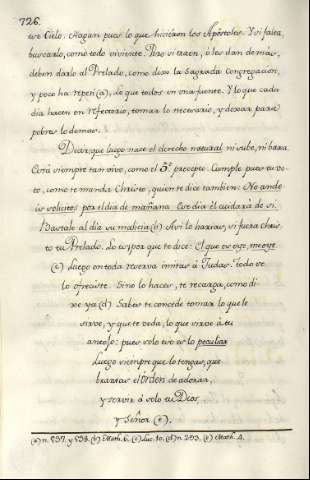 726.
tro Cielo. Hagan pues lo que hicieron los Apóstoles. Y si falta,
buscarlo, como todo viviente. Pero si traen, ó les dan demás,
deben darlo al Prelado, como dice la Sagrada Congregacion,
y poco ha repetí (a), lo que todos en una fuente. Y lo que cada
dia hacen en refectorio, tomar lo necesario, y dexar para
pobres lo demas.
Dicar, que luego nace el derecho natural ni sube, ni baxa.
Está siempre tan vivo, como el 5º precepto. Cumple pues tu vo-
to, como te manda Christo, quien te dice tambien: No ande-
is solicitos por el dia de mañana. Ese dia él cuidará de sí.
Bastale al dia su malicia (b) Asi lo harias, si fuera Chris-
to tu Prelado. Lo es, por que te dice: El que os oye, me oye.
(c) Luego en toda reserva imitas á Judas. Todo se
lo ofreciste. Sino lo haces, te recarga, como di-
xe ya (d) Sabes te concede tomar lo que le
sirve, y que te veda, lo que sirve á tu
antojo: pues solo eso es lo peculiar
Luego siempre que lo tengas, que
brantas el orden de adorar,
y servir á solo tu Dios,
y Señor (e).
(a) n. 537. y 538. (b) Math. 6. (c) Luc. 10. (d) n. 293. (e) Math. 4.